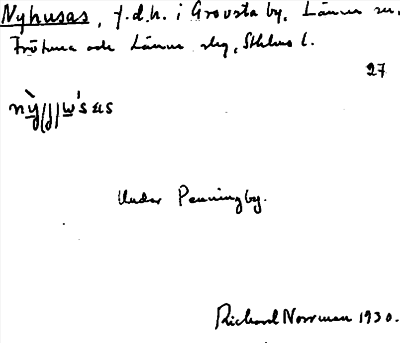 Nyhusas, f.d.h. i Grovsta by, Länna sn,
Fröåkers och Länna slg, Sthlms l.
27
Under Penningby.
Richard Norrman 1930.